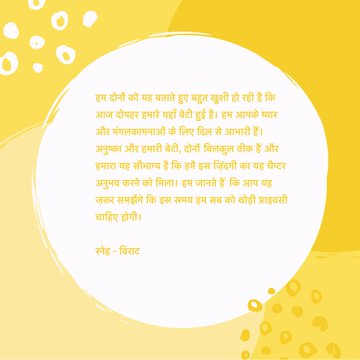 हम दोनों को यह बताते हुए बहुत खुशी हो रही है कि
आज दोपहर हमारे यहाँ बेटी हुई है। हम आपके प्यार
और मंगलकामनाओं के लिए दिल से आभारी हैं।
अनुष्का और हमारी बेटी, दोनों बिलकुल ठीक हैं और
हमारा यह सौभाग्य है कि हमें इस जिंदगी का यह चैप्टर
अनुभव करने को मिला। हम जानते हैं कि आप यह
जरूर समझेंगे कि इस समय हम सब को थोड़ी प्राइवसी
चाहिए होगी।
स्नेह - विराट